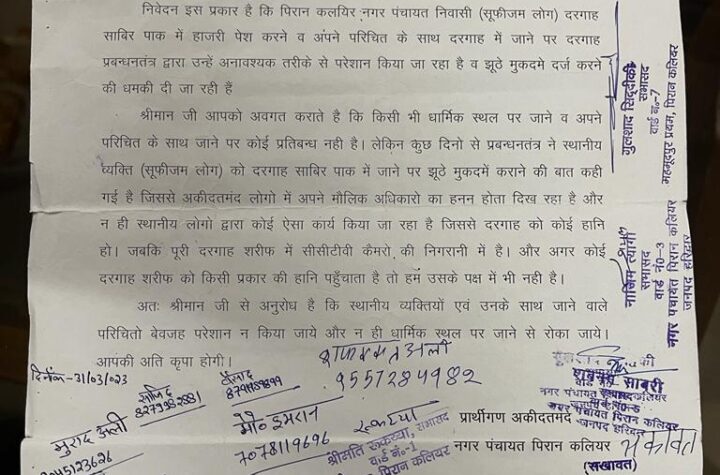 निवेदन इस प्रकार है कि पिरान कलयिर नगर पंचायत निवासी (सूफीजम लोग) दरगाह
साबिर पाक में हाजरी पेश करने व अपने परिचित के साथ दरगाह में जाने पर दरगाह
प्रबन्धनतंत्र द्वारा उन्हें अनावश्यक तरीके से परेशान किया जा रहा है व झूठे मुकदमे दर्ज करने
की धमकी दी जा रही हैं
श्रीमान जी आपको अवगत कराते है कि किसी भी धार्मिक स्थल पर जाने व अपने
परिचित के साथ जाने पर कोई प्रतिबन्ध नही है। लेकिन कुछ दिनो से प्रबन्धनतंत्र ने स्थानीय
व्यक्ति (सूफीजम लोग) को दरगाह साबिर पाक में जाने पर झूठे मुकदमें कराने की बात कही
गई है जिससे अकीदतमंद लोगो में अपने मौलिक अधिकारो का हनन होता दिख रहा है और
न ही स्थानीय लोगों द्वारा कोई ऐसा कार्य किया जा रहा है जिससे दरगाह को कोई हानि
हो। जबकि पूरी दरगाह शरीफ में सीसीटीवी कैमरो की निगरानी में है। और अगर कोई
दरगाह शरीफ को किसी प्रकार की हानि पहुँचाता है तो हमं उसके पक्ष में भी नही है।
अतः श्रीमान जी से अनुरोध है कि स्थानीय व्यक्तियों एवं उनके साथ जाने वाले
परिचितो बेवजह परेशान न किया जाये और न ही धार्मिक स्थल पर जाने से रोका जाये।
आपकी अति कृपा होगी।
गुलशाद सिद्दीकी
सभासद
वार्ड नं०-7
महमूदपुर प्रथम, पिरान कलियर
नाजिम त्यागी
सभासद
वार्ड नं०-3
नगर पंचायत पिरान कलियर
जनपद हरिद्वार
दिनाँक-31/03/023
अली
9557284982
साजिद
8279982831
8791989899
मुराद अली
9045123626
मौ० इमरान
7078119696
रूकय्या
श्रीमति रूकय्या, सभासद
वार्ड नं०-1
पिरान कलियर
साबरी
नगर पंचायत पिरान कलियर
जनपद हरिद्वार
प्रार्थीगण अकीदतमंद
नगर पंचायत पिरान कलियर
(सखावत